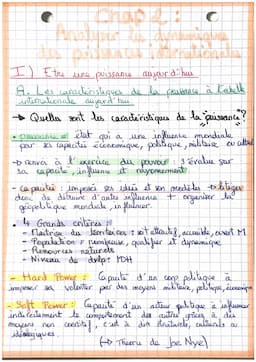 Chap 2 :
Analyser les dynamiques
des puissances internationales
I) Etre une puissance aujourd'hui
A. Les caractéristiques de la puissance à l'échelle
internationale aujourd'hui
→ Quelles sont les caractéristiques de la "puissance"?
- puissance = état qui a une influence mondiale
par ses capacités économique, politique, militaire ou
→ renvoi à l'exercice du pouvoir : s'évalue sur
sa capacité, influence et rayonnement
- capacité : imposer ses idées et son modèle
de détruire d'autre influence + organiser la
géopolitique mondiale, influencer.
- 4 Grands critères :
- Maîtrise du territoire : soit attractif, accessible, ouvert
- Population : nombreuse, qualifier et dynamique
- Ressources naturels
- Niveau de dvlp : IDH
- Hard Power : Capacité d'un corp politique à
imposer sa volonté par des moyens militaire, politique, économique
- Soft Power : Capacité d'un acteur politique à influencer
indirectement le comportement des autres grâce à des
moyens non coercitif, c'est à dire structurels, culturels ou
idéologiques
(→ Theorie de Joe Nye)